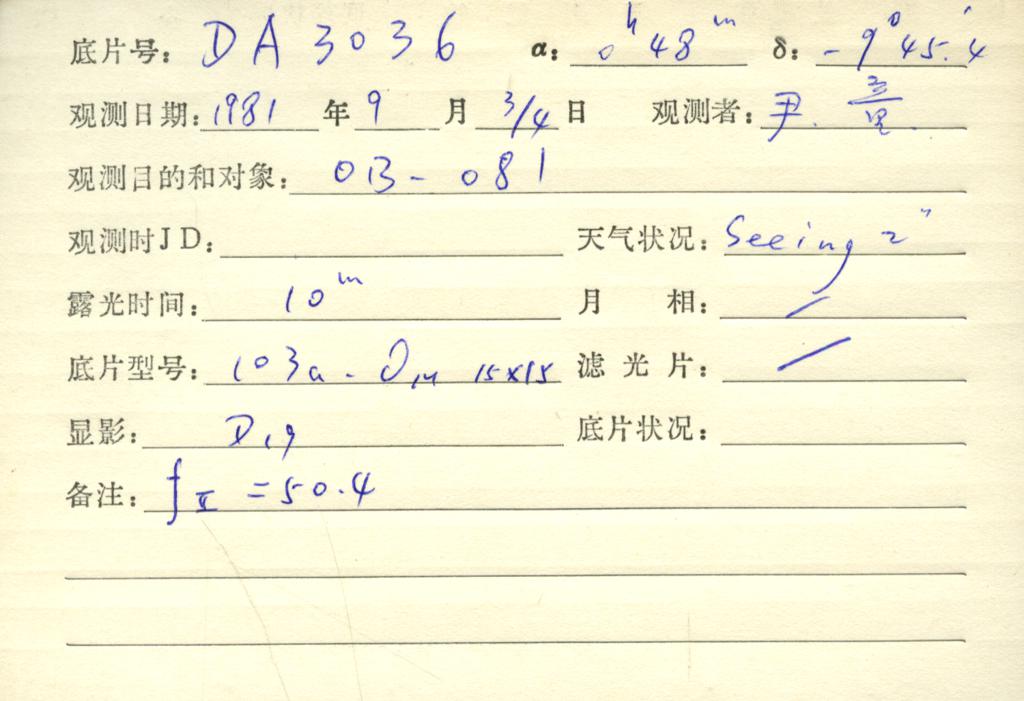 底片号: DA 3036 α: 0ʰ 48ᵐ δ: -9° 45.'4
观测日期: 1981 年 9 月 3/4 日 观测者: 尹.
观测目的和对象: OB-081
观测时JD: 天气状况: Seeing 2"
露光时间: 10ᵐ 月 相: /
底片型号: 103a-O 15x15 滤光片: /
显影: D19 底片状况:
备注: fⅡ = 50.4